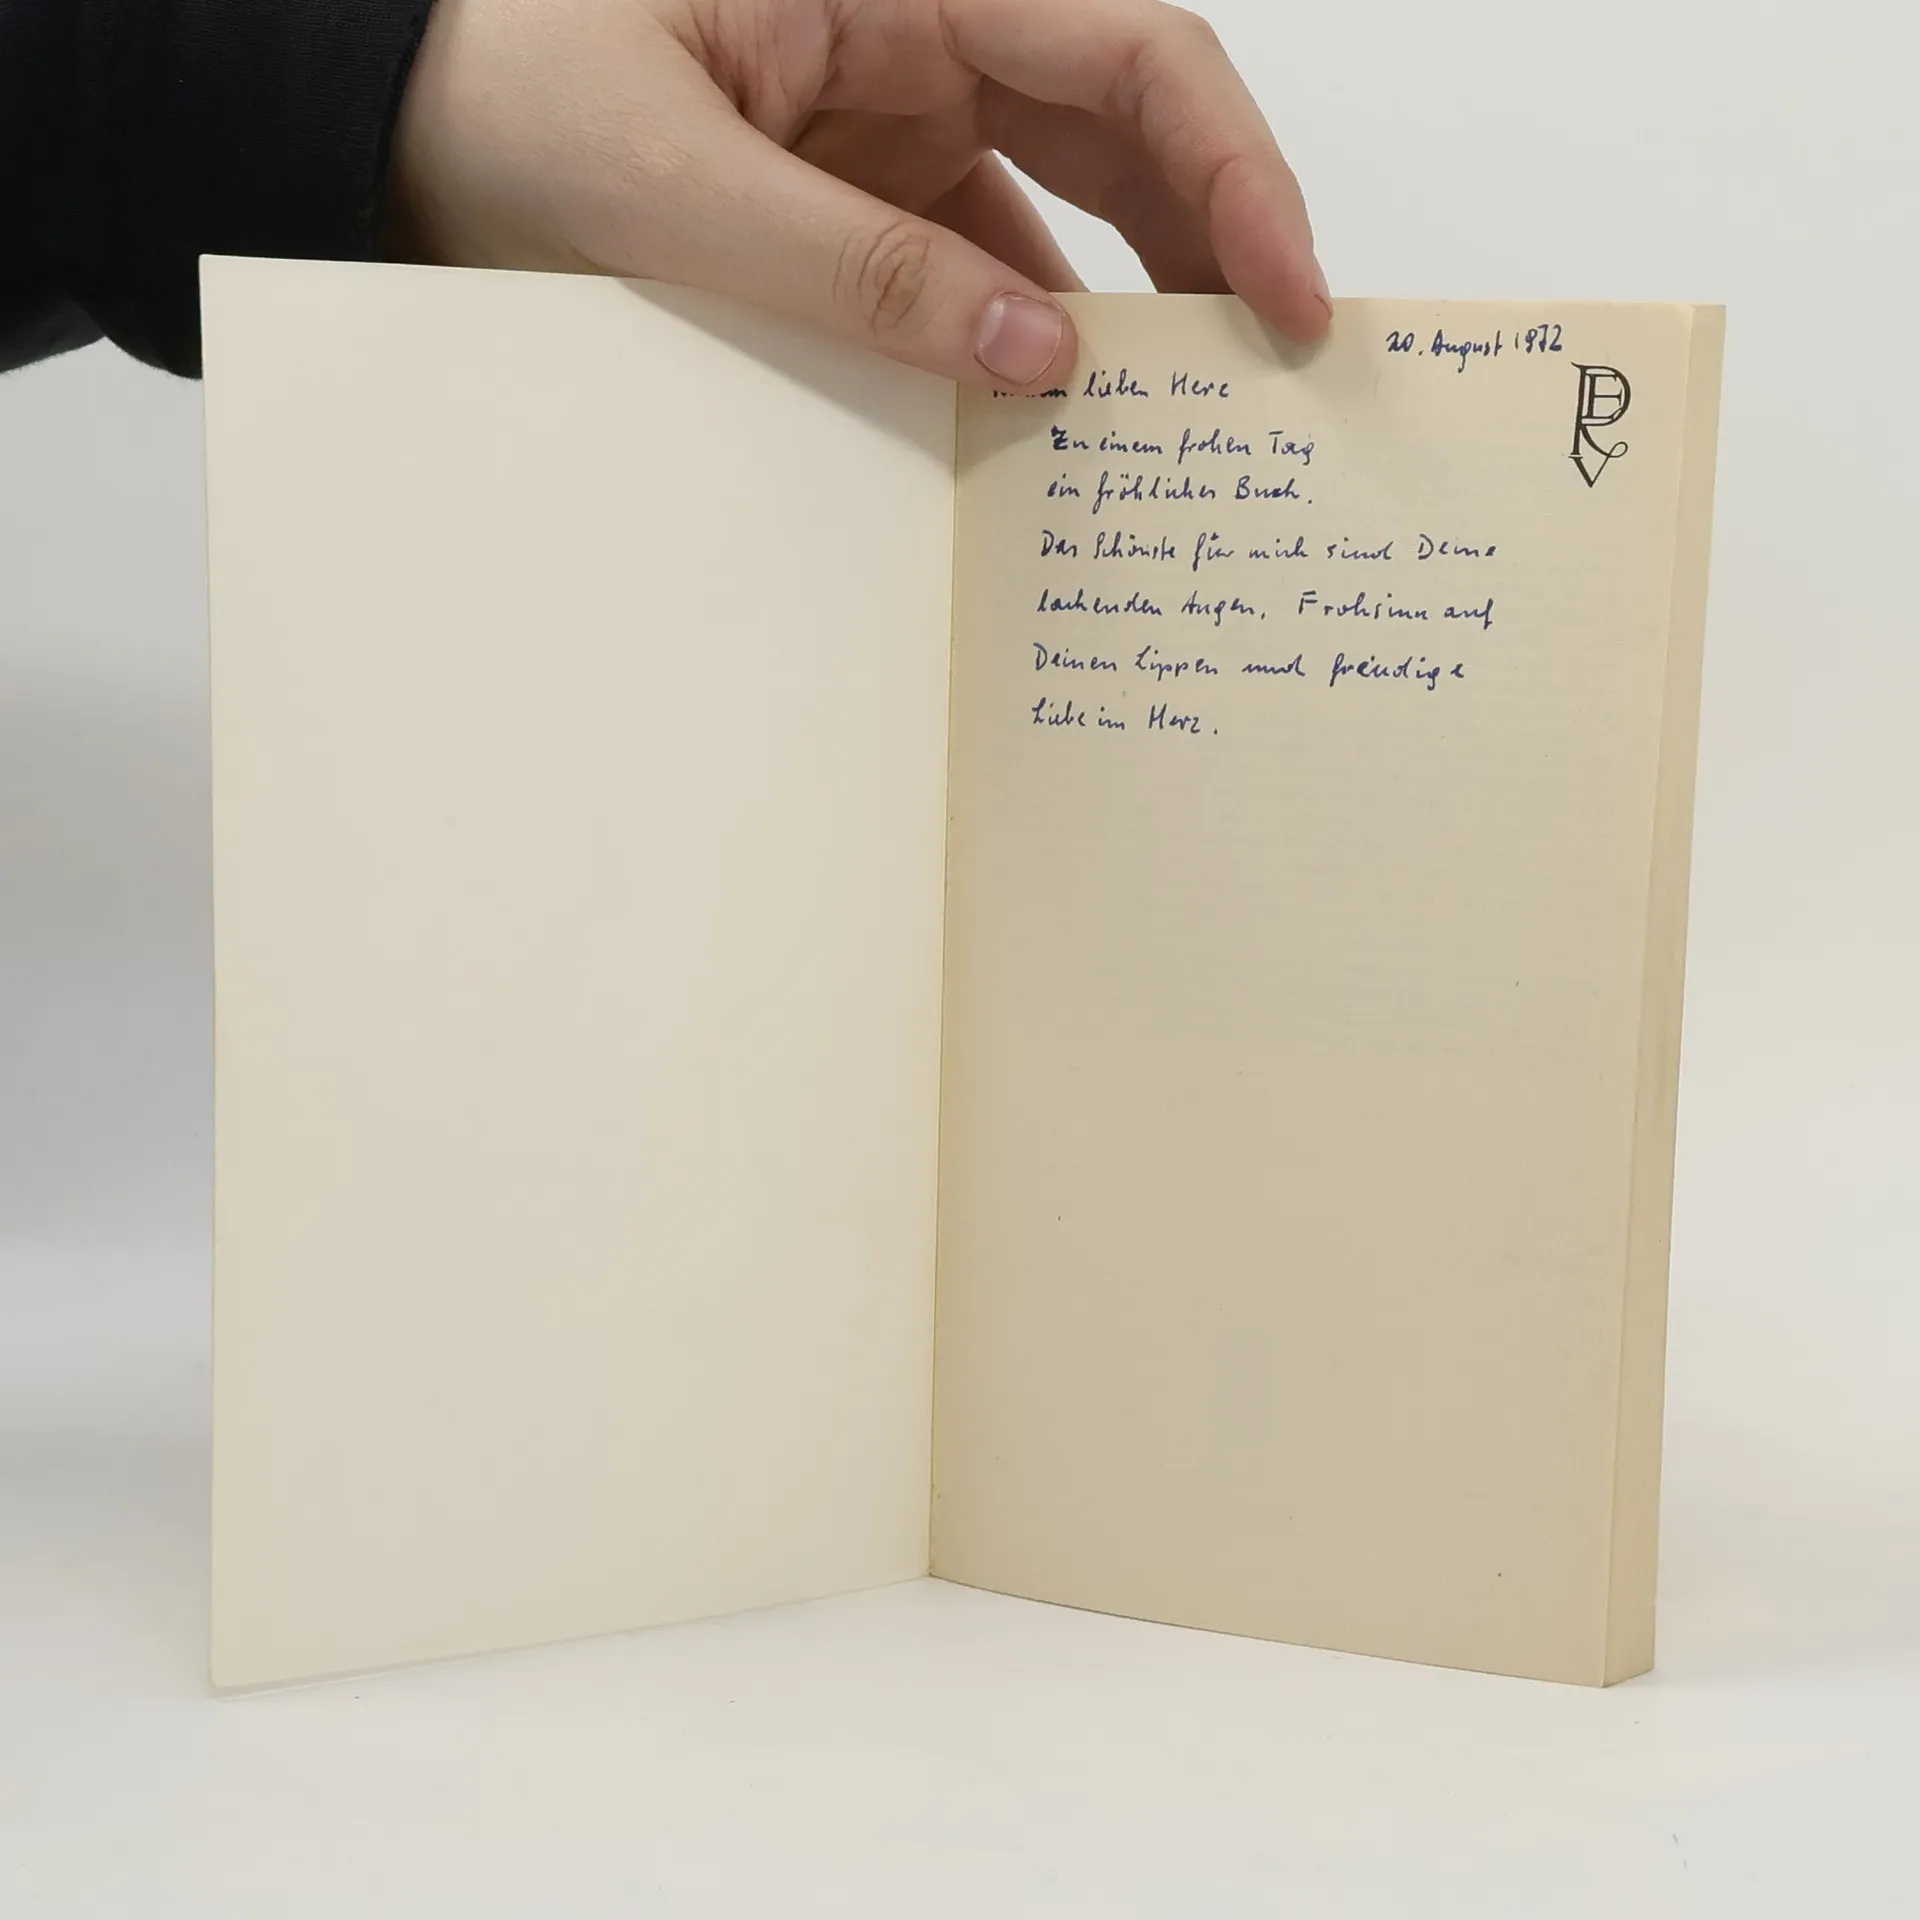 20. August 1972
lieben Herz
Zu einem frohen Tag
ein fröhliches Buch.
Das Schönste für mich sind Deine
lachenden Augen, Frohsinn auf
Deinen Lippen und freudige
Liebe im Herz.